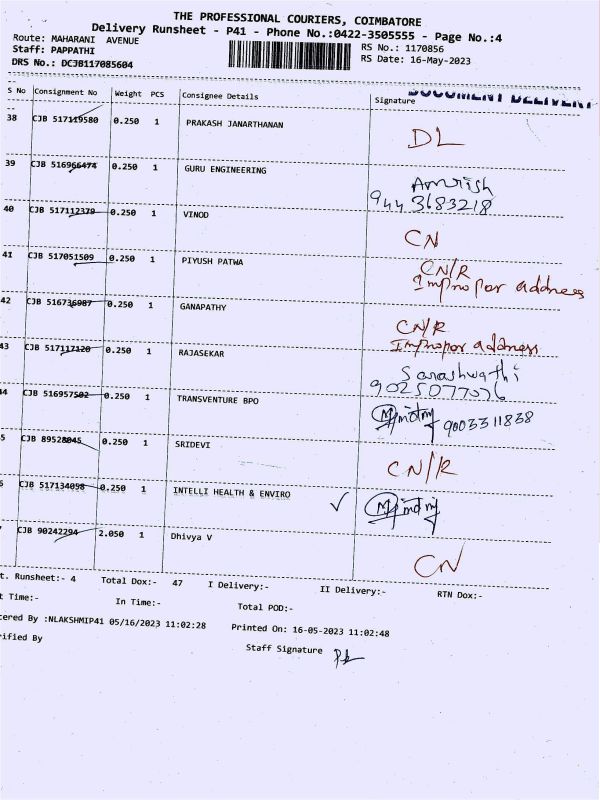 THE PROFESSIONAL COURIERS, COIMBATORE
Delivery Runsheet - P41 - Phone No.:0422-3505555 - Page No.:4
Route: MAHARANI AVENUE
RS No.: 1170856
Staff: PAPPATHI
RS Date: 16-May-2023
DRS No.: DCJB117085604
DOCUMENT DELIVERY
S No Consignment No Weight PCS Consignee Details Signature
38 CJB 517119580 0.250 1 PRAKASH JANARTHANAN DL
39 CJB 516966474 0.250 1 GURU ENGINEERING Amrish
9443683218
40 CJB 517112379 0.250 1 VINOD CN
41 CJB 517051509 0.250 1 PIYUSH PATWA CN/R
Impropor address
42 CJB 516736987 0.250 1 GANAPATHY CN/R
Impropor address
43 CJB 517117120 0.250 1 RAJASEKAR Sarashwathi
9025077076
44 CJB 516957502 0.250 1 TRANSVENTURE BPO 9003311838
5 CJB 89528045 0.250 1 SRIDEVI CN/R
6 CJB 517134058 0.250 1 INTELLI HEALTH & ENVIRO
7 CJB 90242294 2.050 1 Dhivya V CN
t. Runsheet:- 4 Total Dox:- 47 I Delivery:- II Delivery:- RTN Dox:-
t Time:- In Time:- Total POD:-
tered By :NLAKSHMIP41 05/16/2023 11:02:28 Printed On: 16-05-2023 11:02:48
rified By Staff Signature